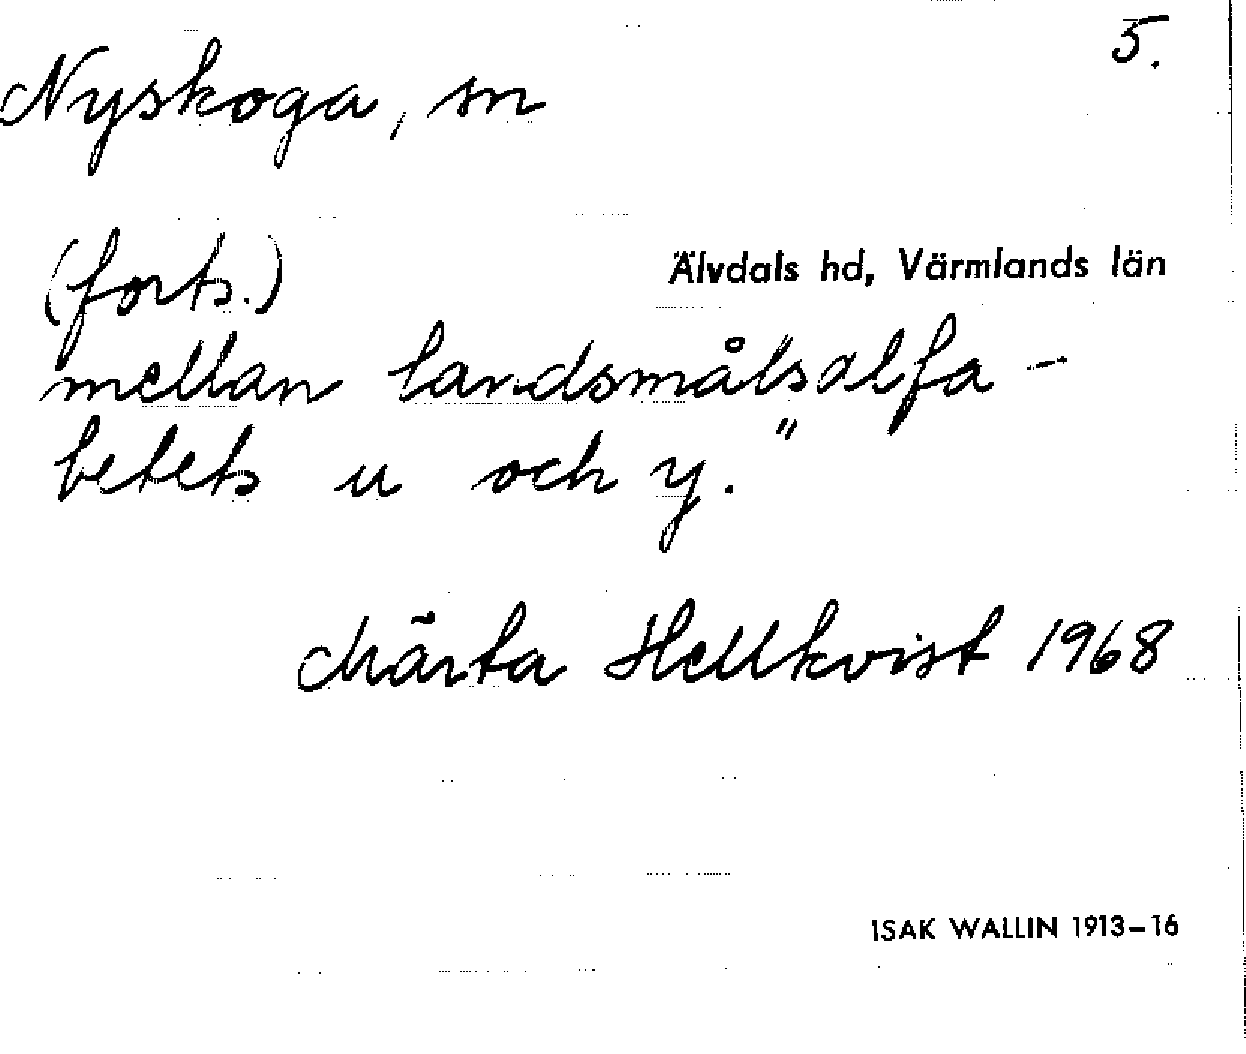 5.
Nyskoga, sn
(forts.)
Älvdals hd, Värmlands län
mellan landsmålsalfa-
betets u och y."
Märta Hellkvist 1968
ISAK WALLIN 1913-16